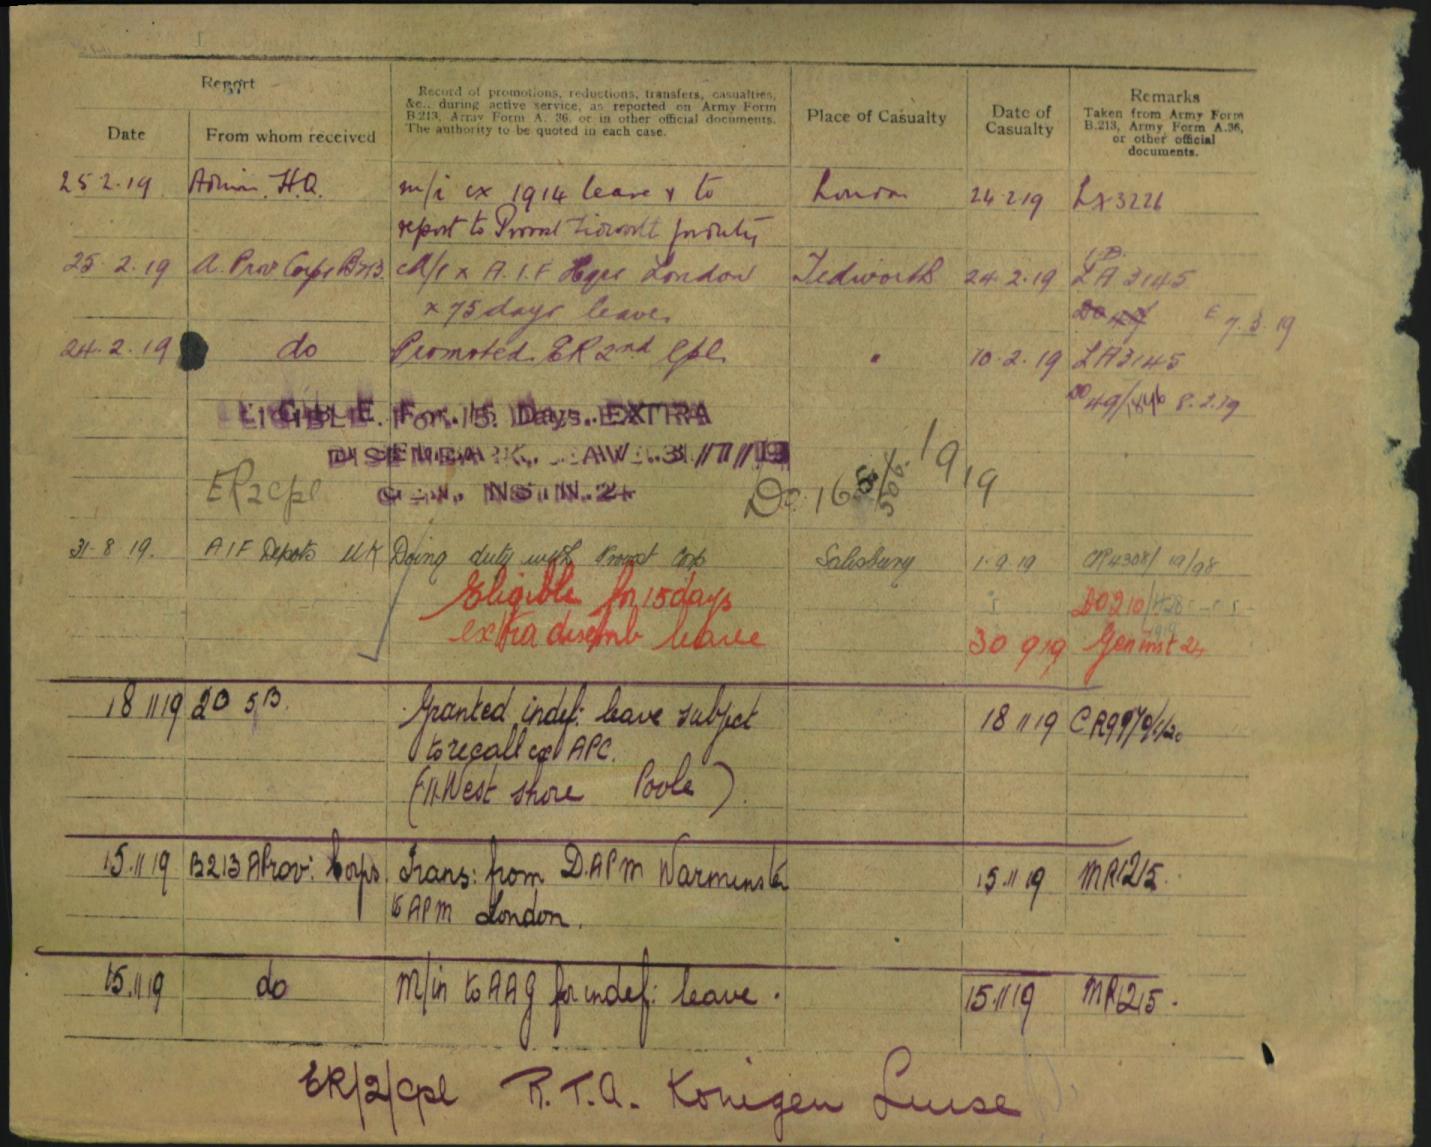 Report
Date
From whom received
Record of promotions, reductions, transfers, casualties,
&c., during active service, as reported on Army Form
B.213, Army Form A. 36, or in other official documents.
The authority to be quoted in each case.
Place of Casualty
Date of
Casualty
Remarks
Taken from Army Form
B.213, Army Form A.36,
or other official
documents.
25 2.19 Admin. H.Q. m/i ex 1914 leave & to London 24 2 19 Lx3226
report to Provost
25.2.19 A. Prov Corps B213. M/I x A.I.F Hqrs London Tedworth 24.2.19 LA 3145
x 75 days leave. 7.3.19
24.2.19 do Promoted ER 2nd Cpl. " 10.2.19 LA3145
8.2.19
ELIGIBLE. For. 15. Days. EXTRA
DISEMBARK. LEAVE. 31/7/19
ER2cpl GEN. INST. N. 24 Do. 168 19/19
31-8 19. AIF Depots UK Doing duty with Provost Corp Salisbury 1.9.19 CR4308/19/98
Eligible for 15 days DO210/
extra disemb leave 30 9 19 Gen inst 24
18 11 19 2D 5B. Granted indef: leave subject 18 11 19
to recall ex APC.
(11 West shore Poole)
15.11 19 B213 AProv: Corps. Trans: from D.APM Warminster 15 11 19 MR1215.
to APM London.
15.11 19 do M/in to AAG for indef: leave. 15.11 19 MR1215.
ER/2/cpl R.T.A. Konigen Luise